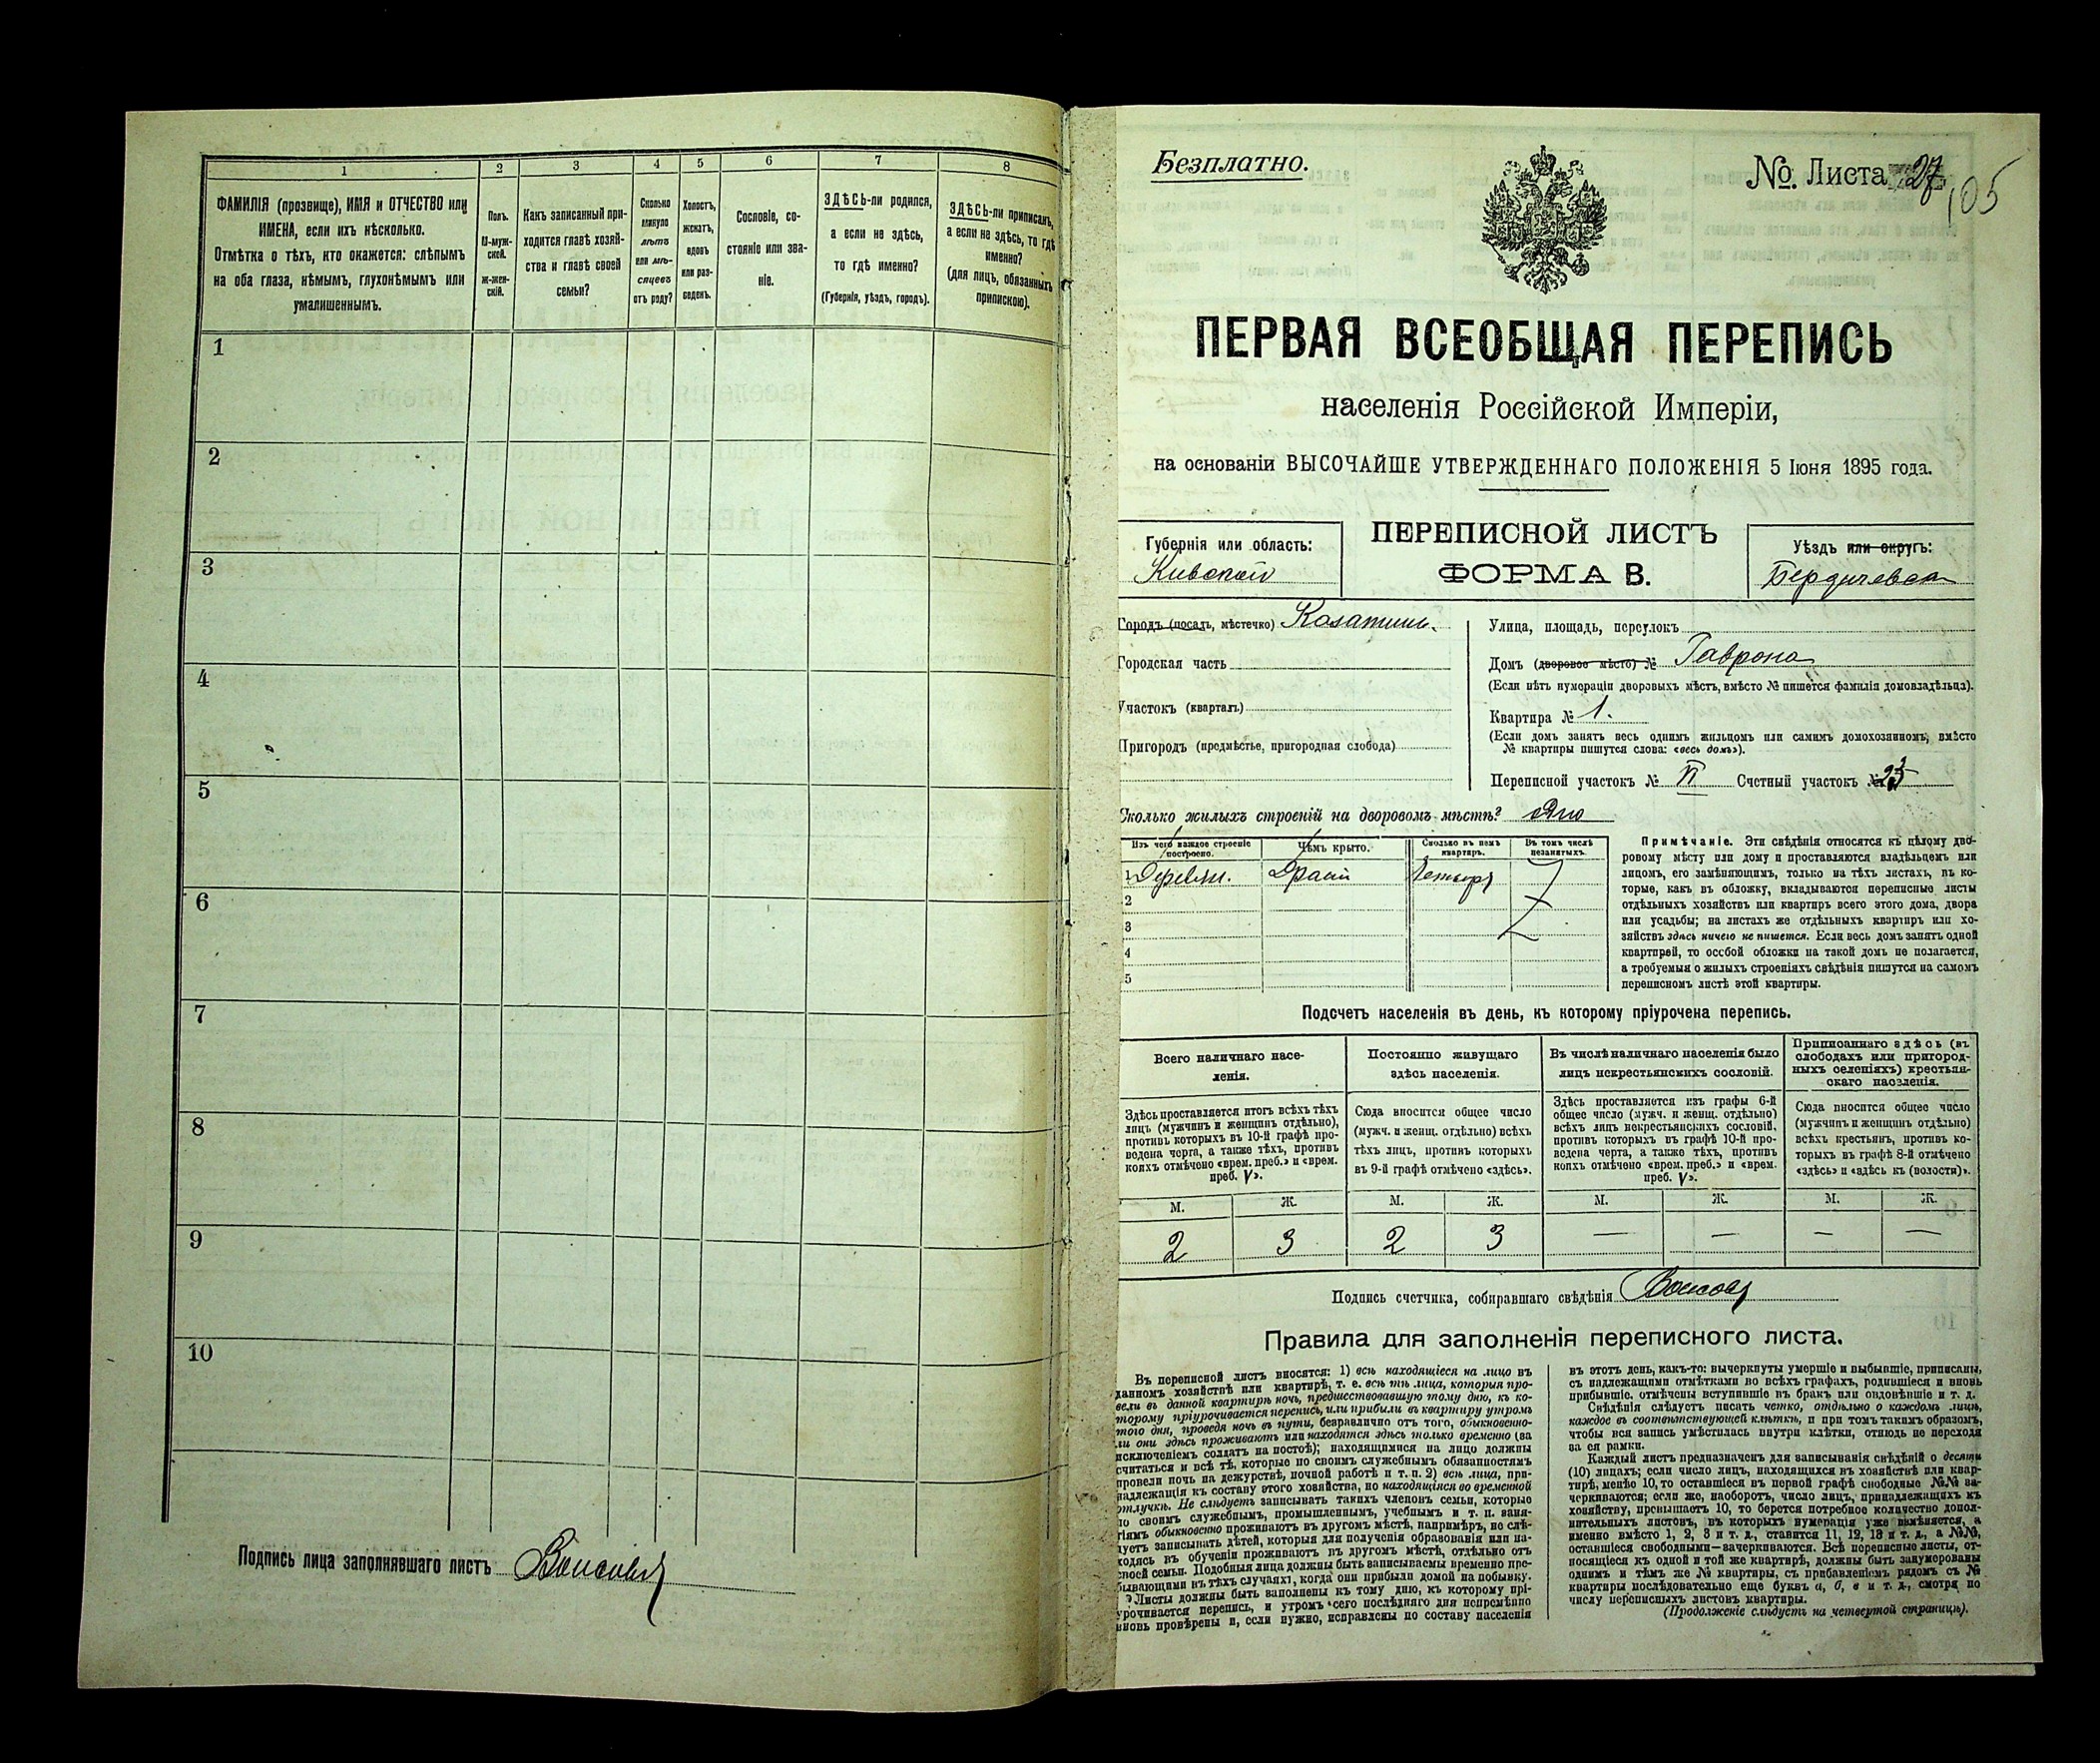 1 2 3 4 5 6 7 8
ФАМИЛІЯ (прозвище), ИМЯ и ОТЧЕСТВО или
ИМЕНА, если ихъ нѣсколько.
Отмѣтка о тѣхъ, кто окажется: слѣпымъ
на оба глаза, нѣмымъ, глухонѣмымъ или
умалишеннымъ.
Полъ.
М-муж-
ской.
ж-жен-
скій.
Какъ записанный при-
ходится главѣ хозяй-
ства и главѣ своей
семьи?
Сколько
минуло
лѣтъ
или мѣ-
сяцевъ
отъ роду?
Холостъ,
женатъ,
вдовъ
или раз-
веденъ.
Сословіе, со-
стояніе или зва-
ніе.
ЗДѢСЬ-ли родился,
а если не здѣсь,
то гдѣ именно?
(Губернія, уѣздъ, городъ).
ЗДѢСЬ-ли приписанъ,
а если не здѣсь, то гдѣ
именно?
(для лицъ, обязанныхъ
припискою).
1
2
3
4
5
6
7
8
9
10
Подпись лица заполнявшаго листъ
Безплатно.
№ Листа 27 105
ПЕРВАЯ ВСЕОБЩАЯ ПЕРЕПИСЬ
населенія Россійской Имперіи,
на основаніи ВЫСОЧАЙШЕ УТВЕРЖДЕННАГО ПОЛОЖЕНІЯ 5 Іюня 1895 года.
Губернія или область:
Кіевской
ПЕРЕПИСНОЙ ЛИСТЪ
ФОРМА В.
Уѣздъ или округъ:
Бердичевск
Городъ (посадъ, мѣстечко) Козатинъ.
Городская часть
Участокъ (кварталъ)
Пригородъ (предмѣстье, пригородная слобода)
Улица, площадь, переулокъ
Домъ (дворовое мѣсто) № Гаврона
(Если нѣтъ нумераціи дворовыхъ мѣстъ, вмѣсто № пишется фамилія домовладѣльца).
Квартира № 1.
(Если домъ занятъ весь однимъ жильцомъ или самимъ домохозяиномъ, вмѣсто
№ квартиры пишутся слова: «весь домъ»).
Переписной участокъ № VI Счетный участокъ №
Сколько жилыхъ строеній на дворовомъ мѣстѣ? Одно
Изъ чего каждое строеніе
построено.
Чѣмъ крыто.
Сколько въ немъ
квартиръ.
Въ томъ числѣ
незанятыхъ.
1 Деревян. Дранй Четыре
2
3
4
5
Примѣчаніе. Эти свѣдѣнія относятся къ цѣлому дво-
ровому мѣсту или дому и проставляются владѣльцемъ или
лицомъ, его замѣняющимъ, только на тѣхъ листахъ, въ ко-
торые, какъ въ обложку, вкладываются переписные листы
отдѣльныхъ хозяйствъ или квартиръ всего этого дома, двора
или усадьбы; на листахъ же отдѣльныхъ квартиръ или хо-
зяйствъ здѣсь ничего не пишется. Если весь домъ занятъ одной
квартирой, то особой обложки на такой домъ не полагается,
а требуемыя о жилыхъ строеніяхъ свѣдѣнія пишутся на самомъ
переписномъ листѣ этой квартиры.
Подсчетъ населенія въ день, къ которому пріурочена перепись.
Всего наличнаго насе-
ленія.
Постоянно живущаго
здѣсь населенія.
Въ числѣ наличнаго населенія было
лицъ некрестьянскихъ сословій.
Приписаннаго здѣсь (въ
слободахъ или пригород-
ныхъ селеніяхъ) крестьян-
скаго населенія.
Здѣсь проставляется итогъ всѣхъ тѣхъ
лицъ (мужчинъ и женщинъ отдѣльно),
противъ которыхъ въ 10-й графѣ про-
ведена черта, а также тѣхъ, противъ
коихъ отмѣчено «врем. преб.» и «врем.
преб. V».
Сюда вносится общее число
(мужч. и женщ. отдѣльно) всѣхъ
тѣхъ лицъ, противъ которыхъ
въ 9-й графѣ отмѣчено «здѣсь».
Здѣсь проставляется изъ графы 6-й
общее число (мужч. и женщ. отдѣльно)
всѣхъ лицъ некрестьянскихъ сословій,
противъ которыхъ въ графѣ 10-й про-
ведена черта, а также тѣхъ, противъ
коихъ отмѣчено «врем. преб.» и «врем.
преб. V».
Сюда вносится общее число
(мужчинъ и женщинъ отдѣльно)
всѣхъ крестьянъ, противъ ко-
торыхъ въ графѣ 8-й отмѣчено
«здѣсь» и «здѣсь къ (волости)».
М. Ж. М. Ж. М. Ж. М. Ж.
2 3 2 3 — — — —
Подпись счетчика, собиравшаго свѣдѣнія
Правила для заполненія переписного листа.
Въ переписной листъ вносятся: 1) всѣ находящіеся на лицо въ
данномъ хозяйствѣ или квартирѣ, т. е. всѣ тѣ лица, которыя про-
вели въ данной квартирѣ ночь, предшествовавшую тому дню, къ ко-
торому пріурочивается перепись, или прибыли въ квартиру утромъ
того дня, проведя ночь въ пути, безразлично отъ того, обыкновенно-
ли они здѣсь проживаютъ или находятся здѣсь только временно (за
исключеніемъ солдатъ на постоѣ); находящимися на лицо должны
считаться и всѣ тѣ, которые по своимъ служебнымъ обязанностямъ
провели ночь на дежурствѣ, ночной работѣ и т. п. 2) всѣ лица, при-
надлежащія къ составу этого хозяйства, но находящіяся во временной
отлучкѣ. Не слѣдуетъ записывать такихъ членовъ семьи, которые
по своимъ служебнымъ, промышленнымъ, учебнымъ и т. п. заня-
тіямъ обыкновенно проживаютъ въ другомъ мѣстѣ, напримѣръ, не слѣ-
дуетъ записывать дѣтей, которыя для полученія образованія или на-
ходясь въ обученіи проживаютъ въ другомъ мѣстѣ, отдѣльно отъ
своей семьи. Подобныя лица должны быть записываемы временно пре-
бывающими въ тѣхъ случаяхъ, когда они прибыли домой на побывку.
Листы должны быть заполнены къ тому дню, къ которому прі-
урочивается перепись, и утромъ сего послѣдняго дня непремѣнно
вновь провѣрены и, если нужно, исправлены по составу населенія
въ этотъ день, какъ-то: вычеркнуты умершіе и выбывшіе, приписаны,
съ надлежащими отмѣтками во всѣхъ графахъ, родившіеся и вновь
прибывшіе, отмѣчены вступившіе въ бракъ или овдовѣвшіе и т. д.
Свѣдѣнія слѣдуетъ писать четко, отдѣльно о каждомъ лицѣ,
каждое въ соотвѣтствующей клѣткѣ, и при томъ такимъ образомъ,
чтобы вся запись умѣстилась внутри клѣтки, отнюдь не переходя
за ея рамки.
Каждый листъ предназначенъ для записыванія свѣдѣній о десяти
(10) лицахъ; если число лицъ, находящихся въ хозяйствѣ или квар-
тирѣ, менѣе 10, то оставшіеся въ первой графѣ свободные №№ за-
черкиваются; если же, наоборотъ, число лицъ, принадлежащихъ къ
хозяйству, превышаетъ 10, то берется потребное количество допол-
нительныхъ листовъ, въ которыхъ нумерація уже измѣняется, а
именно вмѣсто 1, 2, 3 и т. д., ставится 11, 12, 13 и т. д., а №№,
оставшіеся свободными—зачеркиваются. Всѣ переписные листы, от-
носящіеся къ одной и той же квартирѣ, должны быть занумерованы
однимъ и тѣмъ же № квартиры, съ прибавленіемъ рядомъ съ №
квартиры послѣдовательно еще буквъ а, б, в и т. д., смотря по
числу переписныхъ листовъ квартиры.
(Продолженіе слѣдуетъ на четвертой страницѣ).